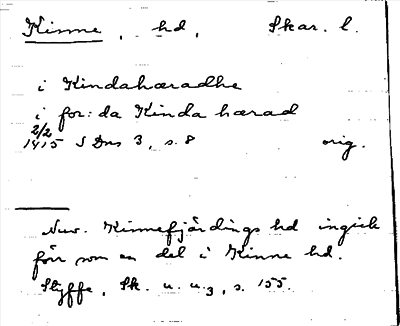 Kinne, hd, Skar. l.
i Kindahæradhe
i for: da Kinda hærad
2/2
1415 S Dns 3, s. 8 orig.
Nuv. Kinnefjärdings hd ingick
förr som en del i Kinne hd.
Styffe, Sk. u. u.3, s. 155.